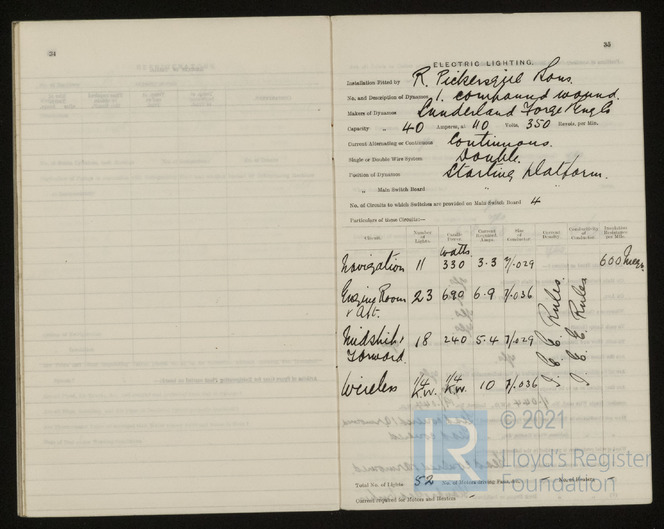 34
35
ELECTRIC LIGHTING.
Installation Fitted by R. Pickersgill & Sons.
No. and Description of Dynamos 1. compound wound.
Makers of Dynamos Sunderland Forge & Eng Co
Capacity 40 Amperes, at 110 Volts, 350 Revols. per Min.
Current Alternating or Continuous Continuous.
Single or Double Wire System Double.
Position of Dynamos Starting platform.
„ Main Switch Board „ „
No. of Circuits to which Switches are provided on Main Switch Board 4
Particulars of these Circuits:—
Circuit. Number of Lights. Candle Power. Current Required Amps. Size of Conductor. Current Density. Conductivity of Conductor. Insulation Resistance per Mile.
watts
Navigation 11 330 3.3 7/.029 600 Meg.
Engine Room & Aft. 23 690 6.9 7/.036
Midship & Forward. 18 540 5.4 7/.029
Wireless 1/4 K.W. 1/4 K.W. 10 7/.036
I. E. E. Rules.
I. E. E. Rules
Total No. of Lights 52 No. of Motors driving Fans, &c. — No. of Heaters —
Current required for Motors and Heaters —
© 2021
LR
Lloyd's Register
Foundation